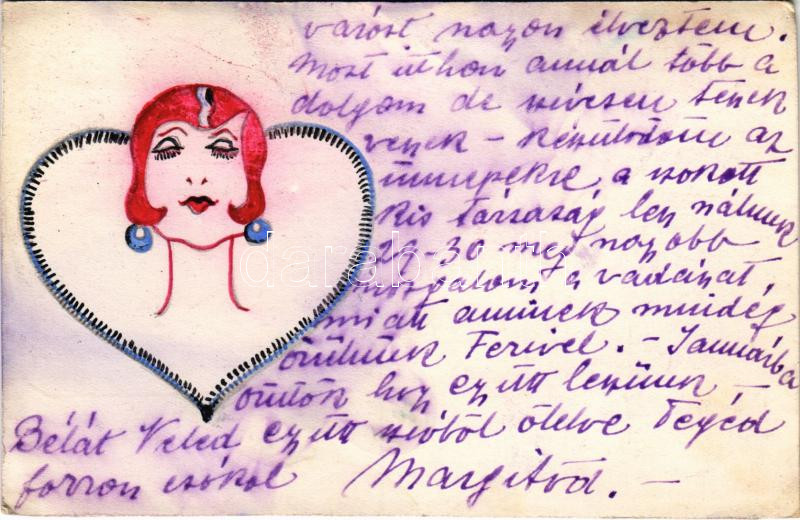 várost nagyon élveztem.
Most itthon annál több a
dolgom de szivesen teszek
veszek - készülődöm az
ünnepekre a szokott
kis társaság lesz nálunk
26-30 még nagyobb
a vadászat,
miatt aminek mindég
örülünk Ferivel. - Januárba
örülök hogy együtt leszünk -
Bélát Veled együtt szívből ölelve Tegéd
forron csókol Margitod. -
darabanth